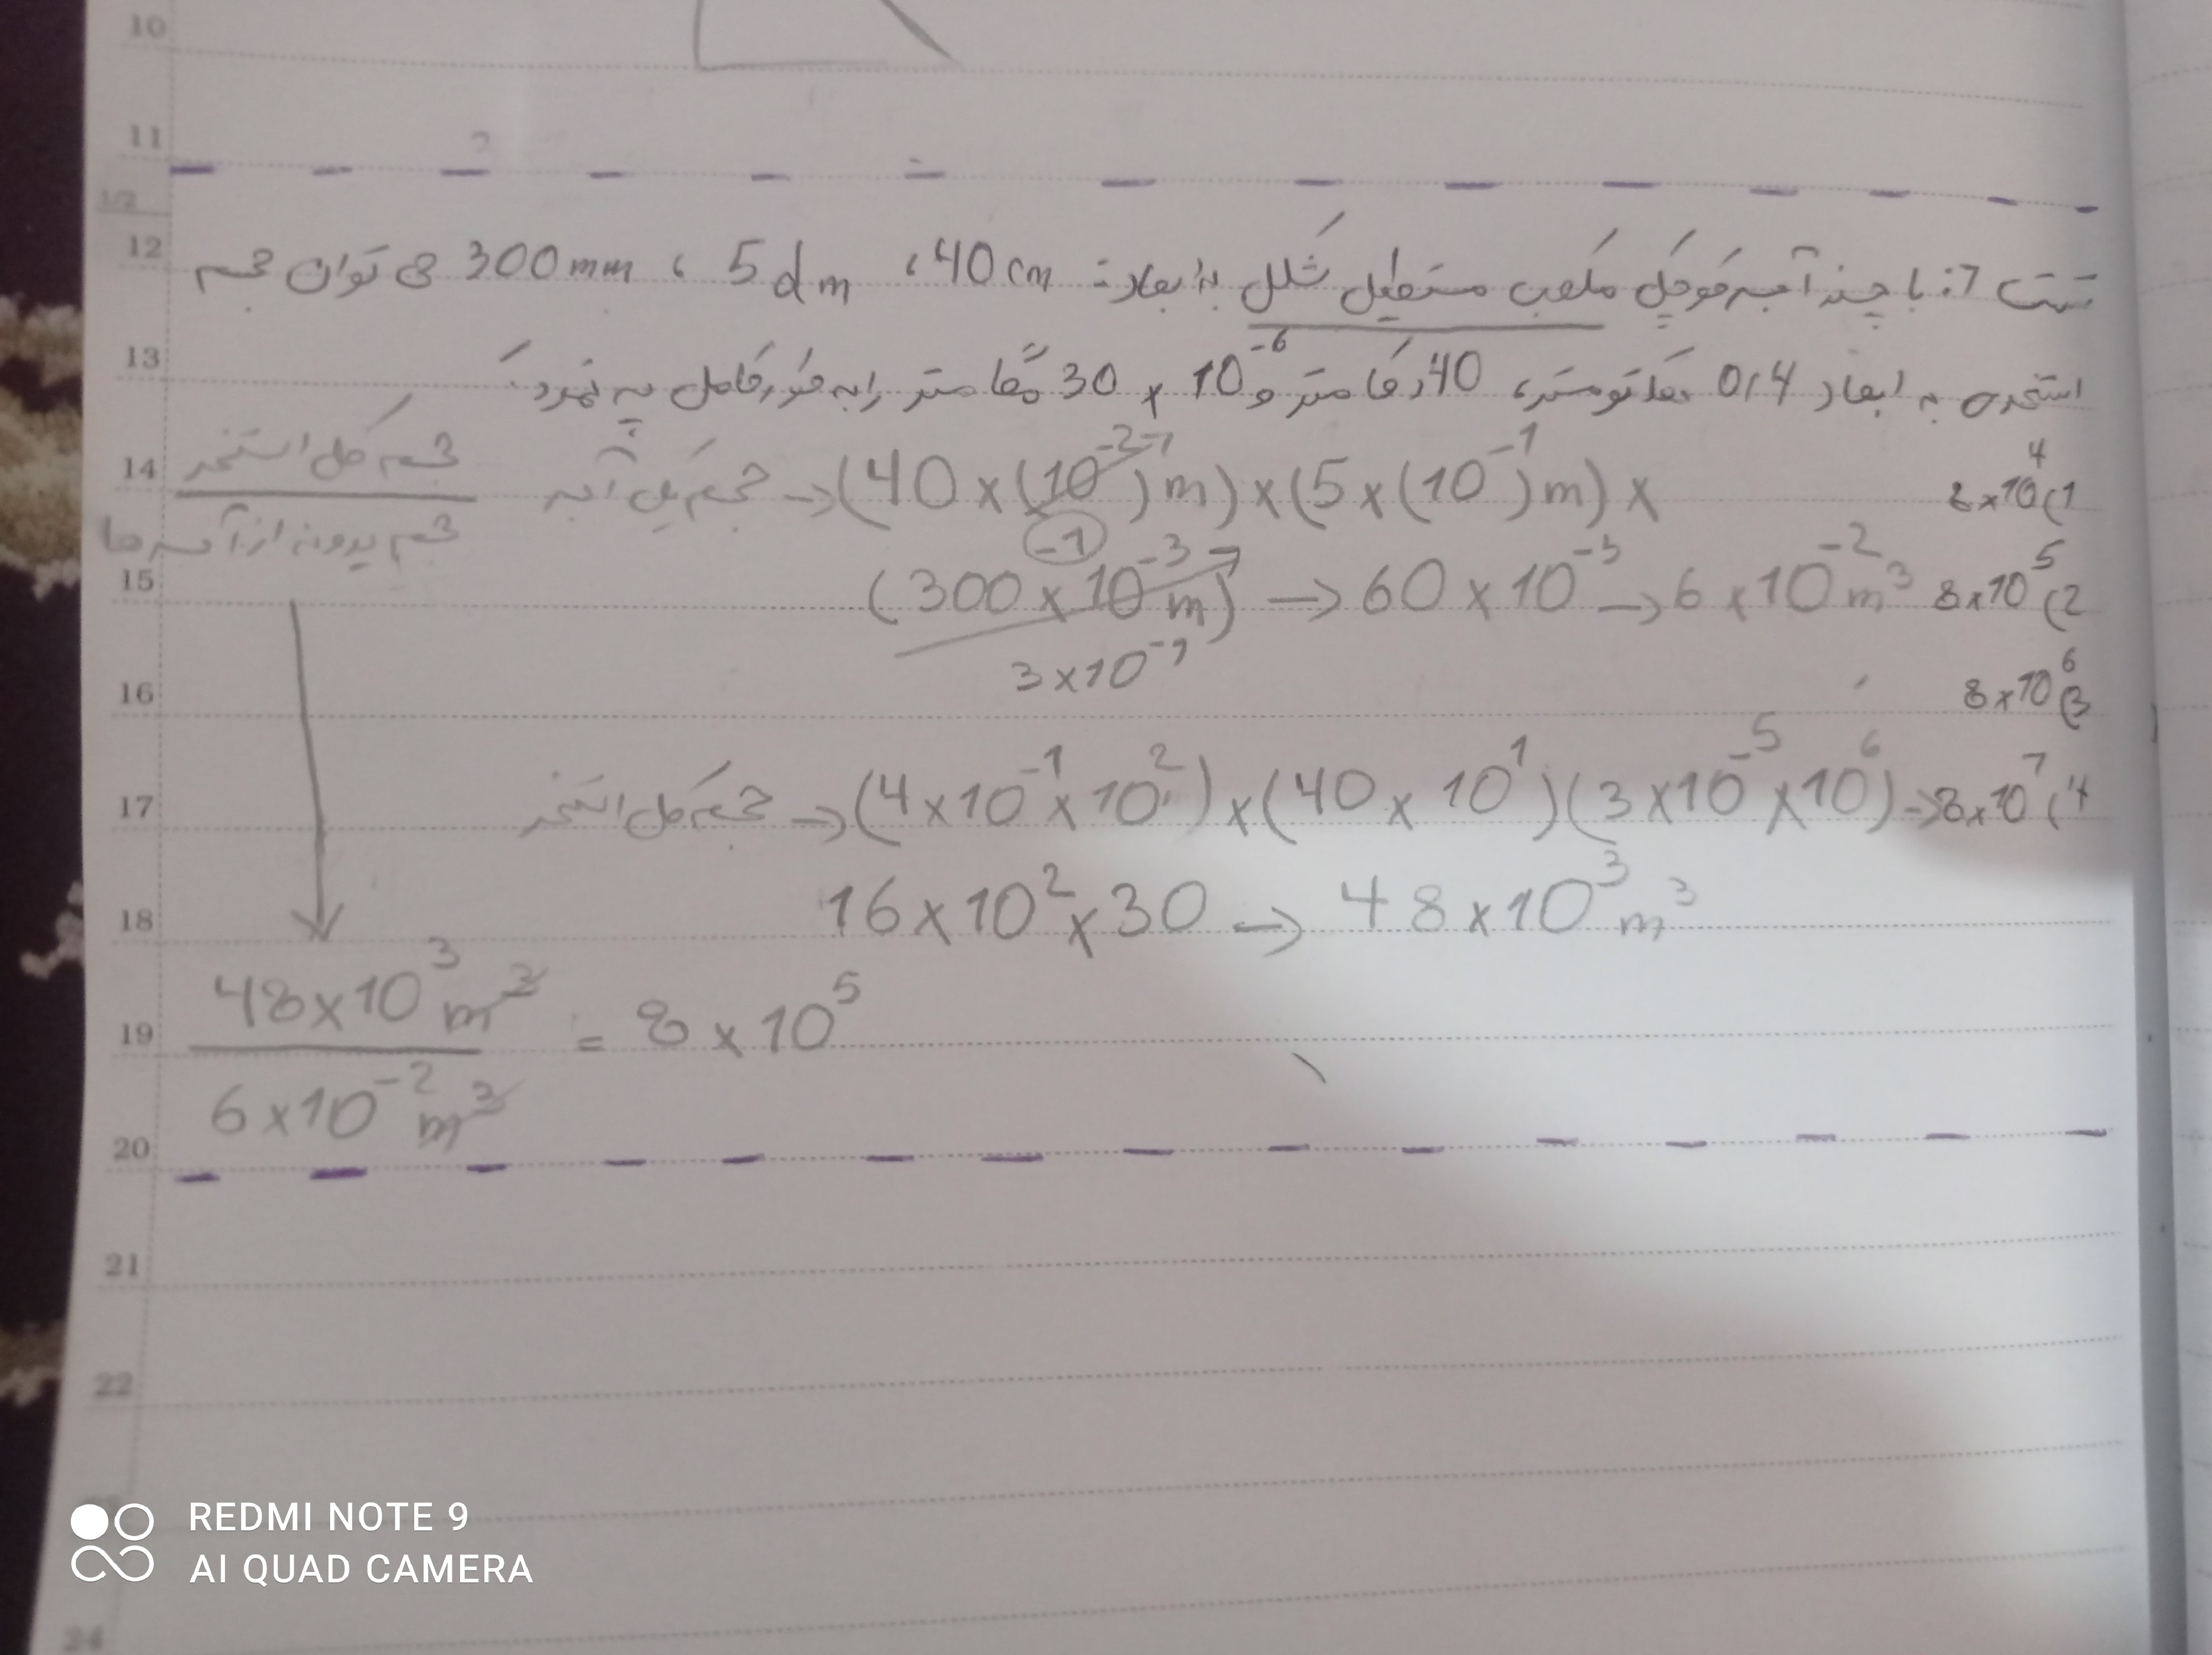 10
11
1/2
12
تست 7: با چند آجر کوچک مکعب مستطیل شکل به ابعاد: 40 cm، 5 dm، 300 mm می توان حجم
13
استخری به ابعاد 0,4 هکتومتر، 40 دکامتر و 30 × 10⁻⁶ مگامتر را به طور کامل پر نمود؟
14
حجم کل استخر
حجم یدونه از آجرها
حجم یک آجر → (40 × (10⁻²) m) × (5 × (10⁻¹) m) ×
8×10⁴ (1
15
-1
(300 × 10⁻³ m) → 60 × 10⁻³ → 6 × 10⁻² m³
8×10⁵ (2
3 × 10⁻¹
16
8×10⁶ (3
17
حجم کل استخر → (4 × 10⁻¹ × 10²) × (40 × 10¹) (3 × 10⁻⁵ × 10⁶) →
8×10⁷ (4
18
16 × 10² × 30 → 48 × 10³ m³
19
48 × 10³ m³
6 × 10⁻² m³
= 8 × 10⁵
20
21
22
24
REDMI NOTE 9
AI QUAD CAMERA